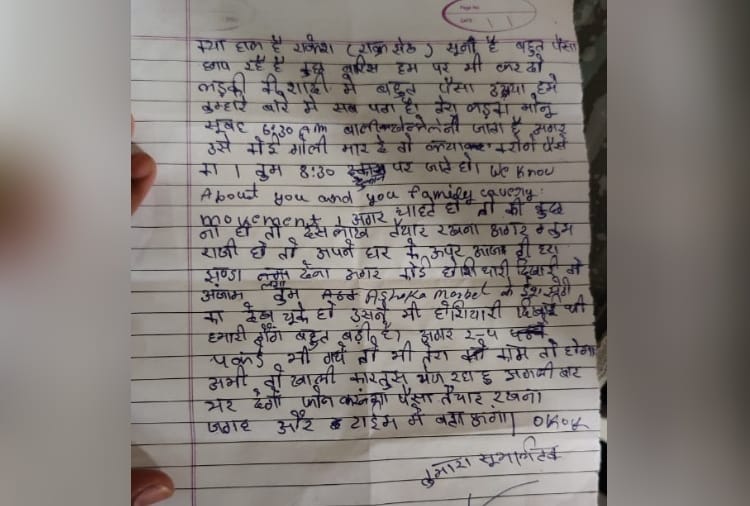 Page No.
DATE
क्या हाल है राकेश (राकु सेठ) सूना है बहुत पैसा
छाप रहे है कुछ बारिस हम पर भी कर दो
लड़की की शादी मे बहुत पैसा हमे
तुम्हारे बारे मे सब पता है। तेरा लड़का मोनू
सूबह 6:30 am जाता है अगर
उसे कोई गोली मार दे तो क्या करोगे पैसे
का । तुम 8:30 पर जाते हो। We Know
About you and you family
movement अगर चाहते हो की कुछ
ना हो तो दस लाख तैयार रखना अगर तुम
राजी हो तो अपने घर के ऊपर आज ही हरा
झण्डा लगा देना अगर कोई होशियारी दिखाई तो
अंजाम तुम Ashoka के
का देख चूके हो उसने भी होशियारी दिखाई थी
हमारी गैंग बहुत बड़ी है। अगर २-५
पकड़े भी गये तो भी तेरा काम तो होगा
अभी तो खाली कारतुस भेज रहा हु अगली बार
भर देगा पैसा तैयार रखना
जगह और टाइम मे बता दूंगा। okay
तुमारा